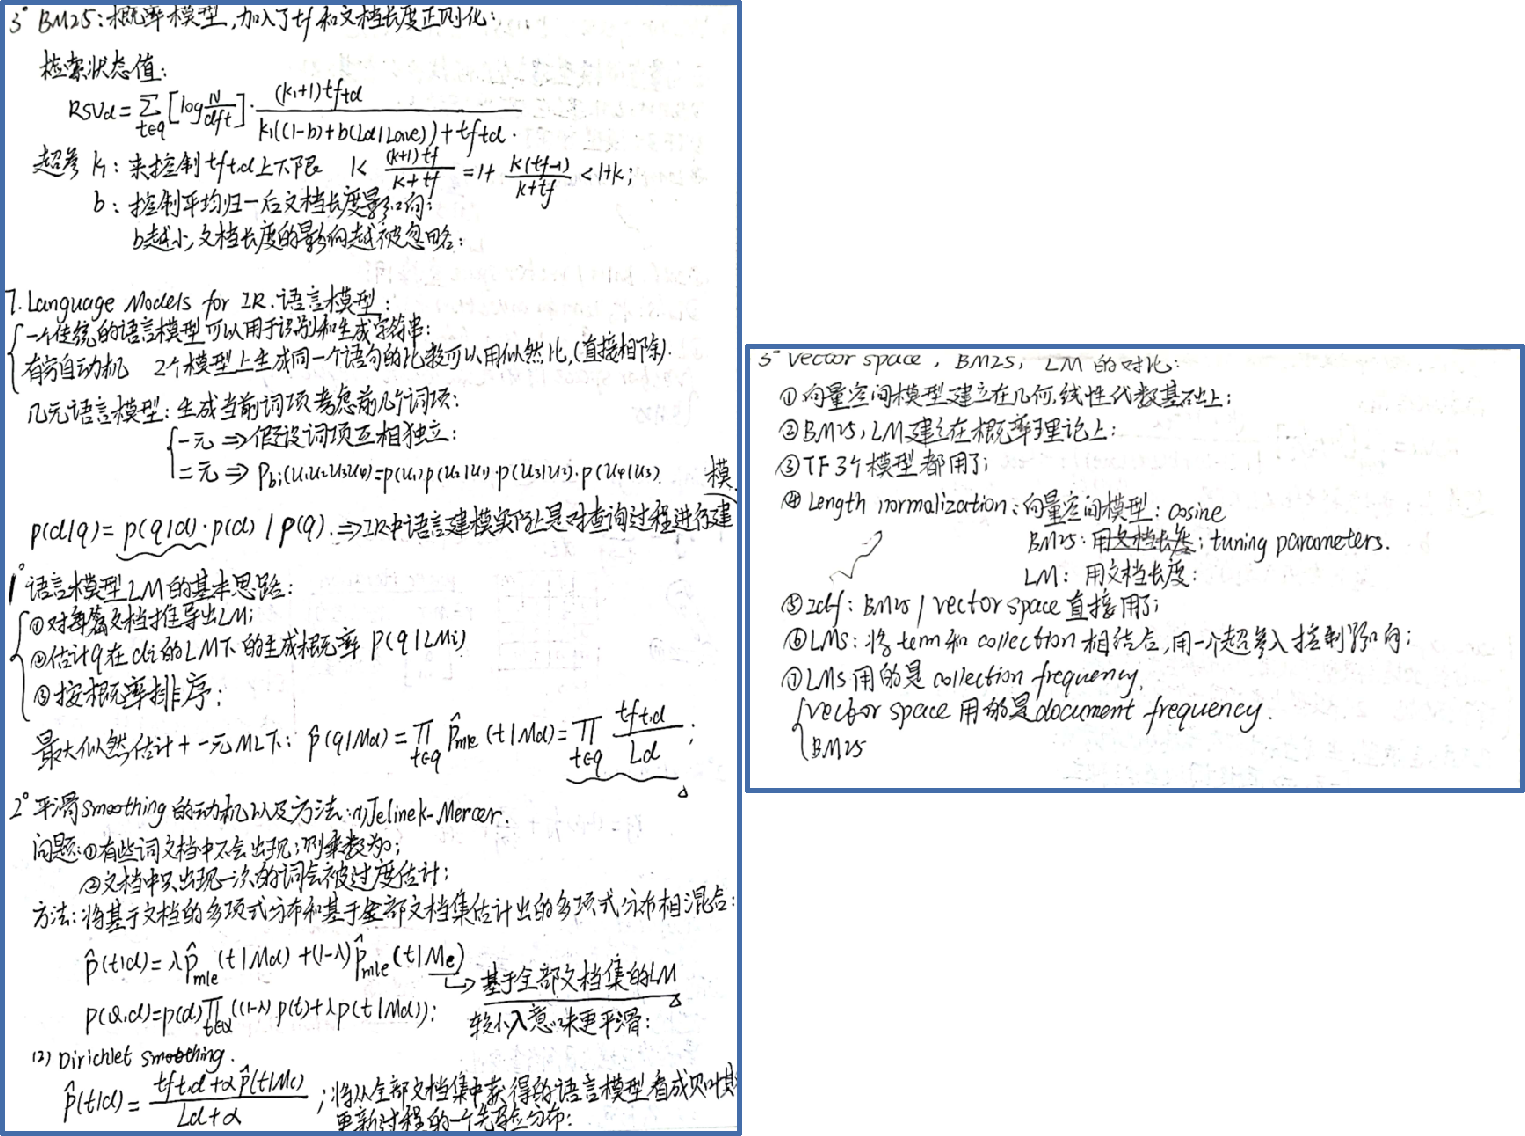 3° BM25:概率模型,加入了tf和文档长度正则化:
检索状态值:
RSVd = ∑_{t∈q} [log N/dft] · (k₁+1)tftd / (k₁((1-b)+b(Ld/Lave))+tftd).
超参 k₁: 来控制tftd上下限 1< (k+1)tf/(k+tf) = 1+ k(tf-1)/(k+tf) < 1+k;
b: 控制平均归一后文档长度影响:
b越小,文档长度的影响越被忽略:
7. Language Models for IR.语言模型:
一个传统的语言模型可以用于识别和生成字符串:
有穷自动机 2个模型上生成同一个语句的比数可以用似然比,(直接相除).
几元语言模型:生成当前词项考虑前几个词项:
一元 ⇒ 假设词项互相独立:
二元 ⇒ Pbi(u₁u₂u₃u₄)=p(u₁)p(u₂|u₁)·p(u₃|u₂)·p(u₄|u₃)
模
p(d|q) = p(q|d)·p(d) / p(q). ⇒ IR中语言建模实际上是对查询过程进行建
1° 语言模型LM的基本思路:
①对每篇文档推导出LM;
②估计q在di的LM下的生成概率 p(q|LMi)
③按概率排序:
最大似然估计+一元ML下: p̂(q|Md) = ∏_{t∈q} p̂mle(t|Md) = ∏_{t∈q} tft,d / Ld ;
2° 平滑Smoothing的动机以及方法:(1)Jelinek-Mercer.
问题:①有些词文档中不会出现;则乘数为0;
②文档中只出现一次的词会被过度估计:
方法:将基于文档的多项式分布和基于全部文档集估计出的多项式分布相混合:
p̂(t|d) = λp̂mle(t|Md) + (1-λ)p̂mle(t|Mc)
基于全部文档集的LM
p(Q,d)=p(d)∏_{t∈Q}((1-λ)p(t)+λp(t|Md)):
较小λ意味更平滑:
(2) Dirichlet smoothing.
p̂(t|d) = (tft,d + αp̂(t|Mc)) / (Ld+α) ;将从全部文档集中获得的语言模型看成贝叶斯
更新过程的一个先验分布:
3° Vector space, BM25, LM的对比:
①向量空间模型建立在几何,线性代数基础上;
②BM25,LM建立在概率理论上:
③TF 3个模型都用了;
④Length normalization:向量空间模型: cosine
BM25: 用文档长度; tuning parameters.
LM: 用文档长度:
⑤idf: BM25 / vector space直接用了;
⑥LMs: 将term和collection相结合,用一个超参λ控制影响;
⑦LMs用的是collection frequency.
vector space用的是document frequency.
BM25